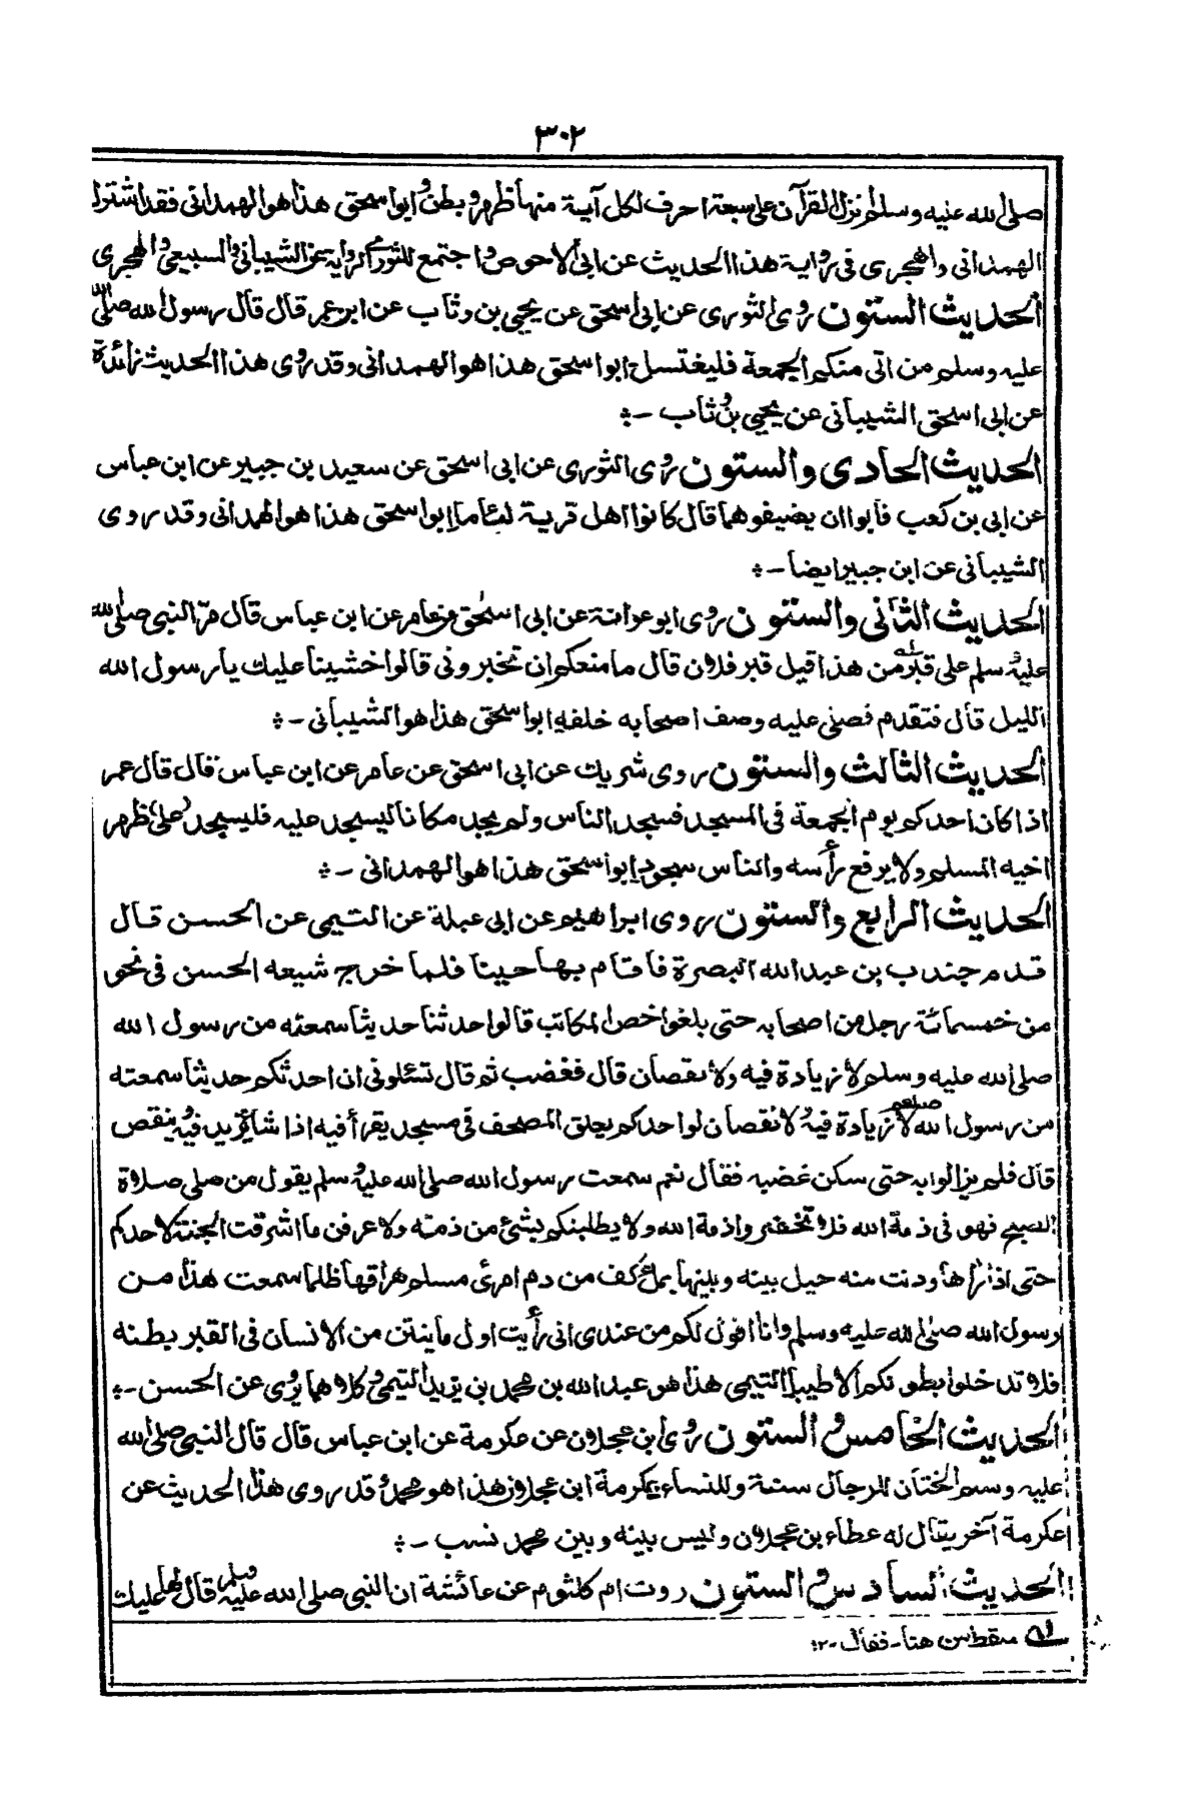 ٣٠٢
صلى الله عليه وسلم انزل القرآن على سبعة احرف لكل آية منها ظهر و بطن و ابو اسحق هذا هو الهمدانى فقد اشترك
الهمدانى والهجرى فى رواية هذا الحديث عن ابى الاحوص و اجتمع للثورى الرواية عن الشيبانى والسبيعى والهجرى
الحديث الستون روى الثورى عن ابى اسحق عن يحيى بن وثاب عن ابن عمر قال قال رسول الله صلى الله
عليه وسلم من اتى منكم الجمعة فليغتسل ابو اسحق هذا هو الهمدانى وقد روى هذا الحديث زائدة
عن ابى اسحق الشيبانى عن يحيى بن وثاب -:
الحديث الحادى والستون روى الثورى عن ابى اسحق عن سعيد بن جبير عن ابن عباس
عن ابى بن كعب فابوا ان يضيفوهما قال كانوا اهل قرية لئاما ابو اسحق هذا هو الهمدانى وقد روى
الشيبانى عن ابن جبير ايضا -:
الحديث الثانى والستون روى ابو عوانة عن ابى اسحق عن عامر عن ابن عباس قال مرّ النبى صلى الله
عليه وسلم على قبر له من هذا قيل قبر فلان قال ما منعكم ان تخبرونى قالوا خشينا عليك يا رسول الله
الليل قال فتقدم فصلى عليه وصف اصحابه خلفه ابو اسحق هذا هو الشيبانى -:
الحديث الثالث والستون روى شريك عن ابى اسحق عن عامر عن ابن عباس قال قال عمر
اذا كان احدكم يوم الجمعة فى المسجد فسجد الناس ولم يجد مكانا ليسجد عليه فليسجد على ظهر
اخيه المسلم ولا يرفع رأسه والناس سجود ابو اسحق هذا هو الهمدانى -:
الحديث الرابع والستون روى ابراهيم عن ابى عبلة عن التيمى عن الحسن قال
قدم جندب بن عبدالله البصرة فاقام بها حينا فلما خرج شيعه الحسن فى نحو
من خمسمائة رجل من اصحابه حتى بلغوا خص المكاتب قالوا حدثنا حديثا سمعته من رسول الله
صلى الله عليه وسلم لا زيادة فيه ولا نقصان قال فغضب ثم قال تسئلونى ان احدثكم حديثا سمعته
من رسول الله صلعم لا زيادة فيه ولا نقصان لو احدكم يحلق المصحف فى مسجد يقرأ فيه اذا شاء يزيد فيه وينقص
قال فلم يزالوا به حتى سكن غضبه فقال نعم سمعت رسول الله صلى الله عليه وسلم يقول من صلى صلاة
الصبح فهو فى ذمة الله فلا تخفروا ذمة الله ولا يطلبنكم بشئ من ذمته ولا عرفن ما اشرقت الجنة لاحدكم
حتى اذا رأها ودنت منه حيل بينه وبينها بملئ كف من دم امرئ مسلم هراقها ظلما سمعت هذا من
رسول الله صلى الله عليه وسلم وانا اقول لكم من عندى انى رأيت اول ما ينتن من الانسان فى القبر بطنه
فلا تدخلوا بطونكم الا طيبا التيمى هذا هو عبدالله بن محمد بن يزيد التيمى وكلاهما يروى عن الحسن -:
الحديث الخامس والستون روى ابن عجلان عن عكرمة عن ابن عباس قال قال النبى صلى الله
عليه وسلم الختان للرجال سنة وللنساء مكرمة ابن عجلان هذا هو محمد وقد روى هذا الحديث عن
عكرمة آخر يقال له عطاء بن عجلان وليس بينه وبين محمد نسب -:
الحديث السادس والستون روت ام كلثوم عن عائشة ان النبى صلى الله عليه وسلم قال لها عليك
له سقط من هنا - فقال - ١٢